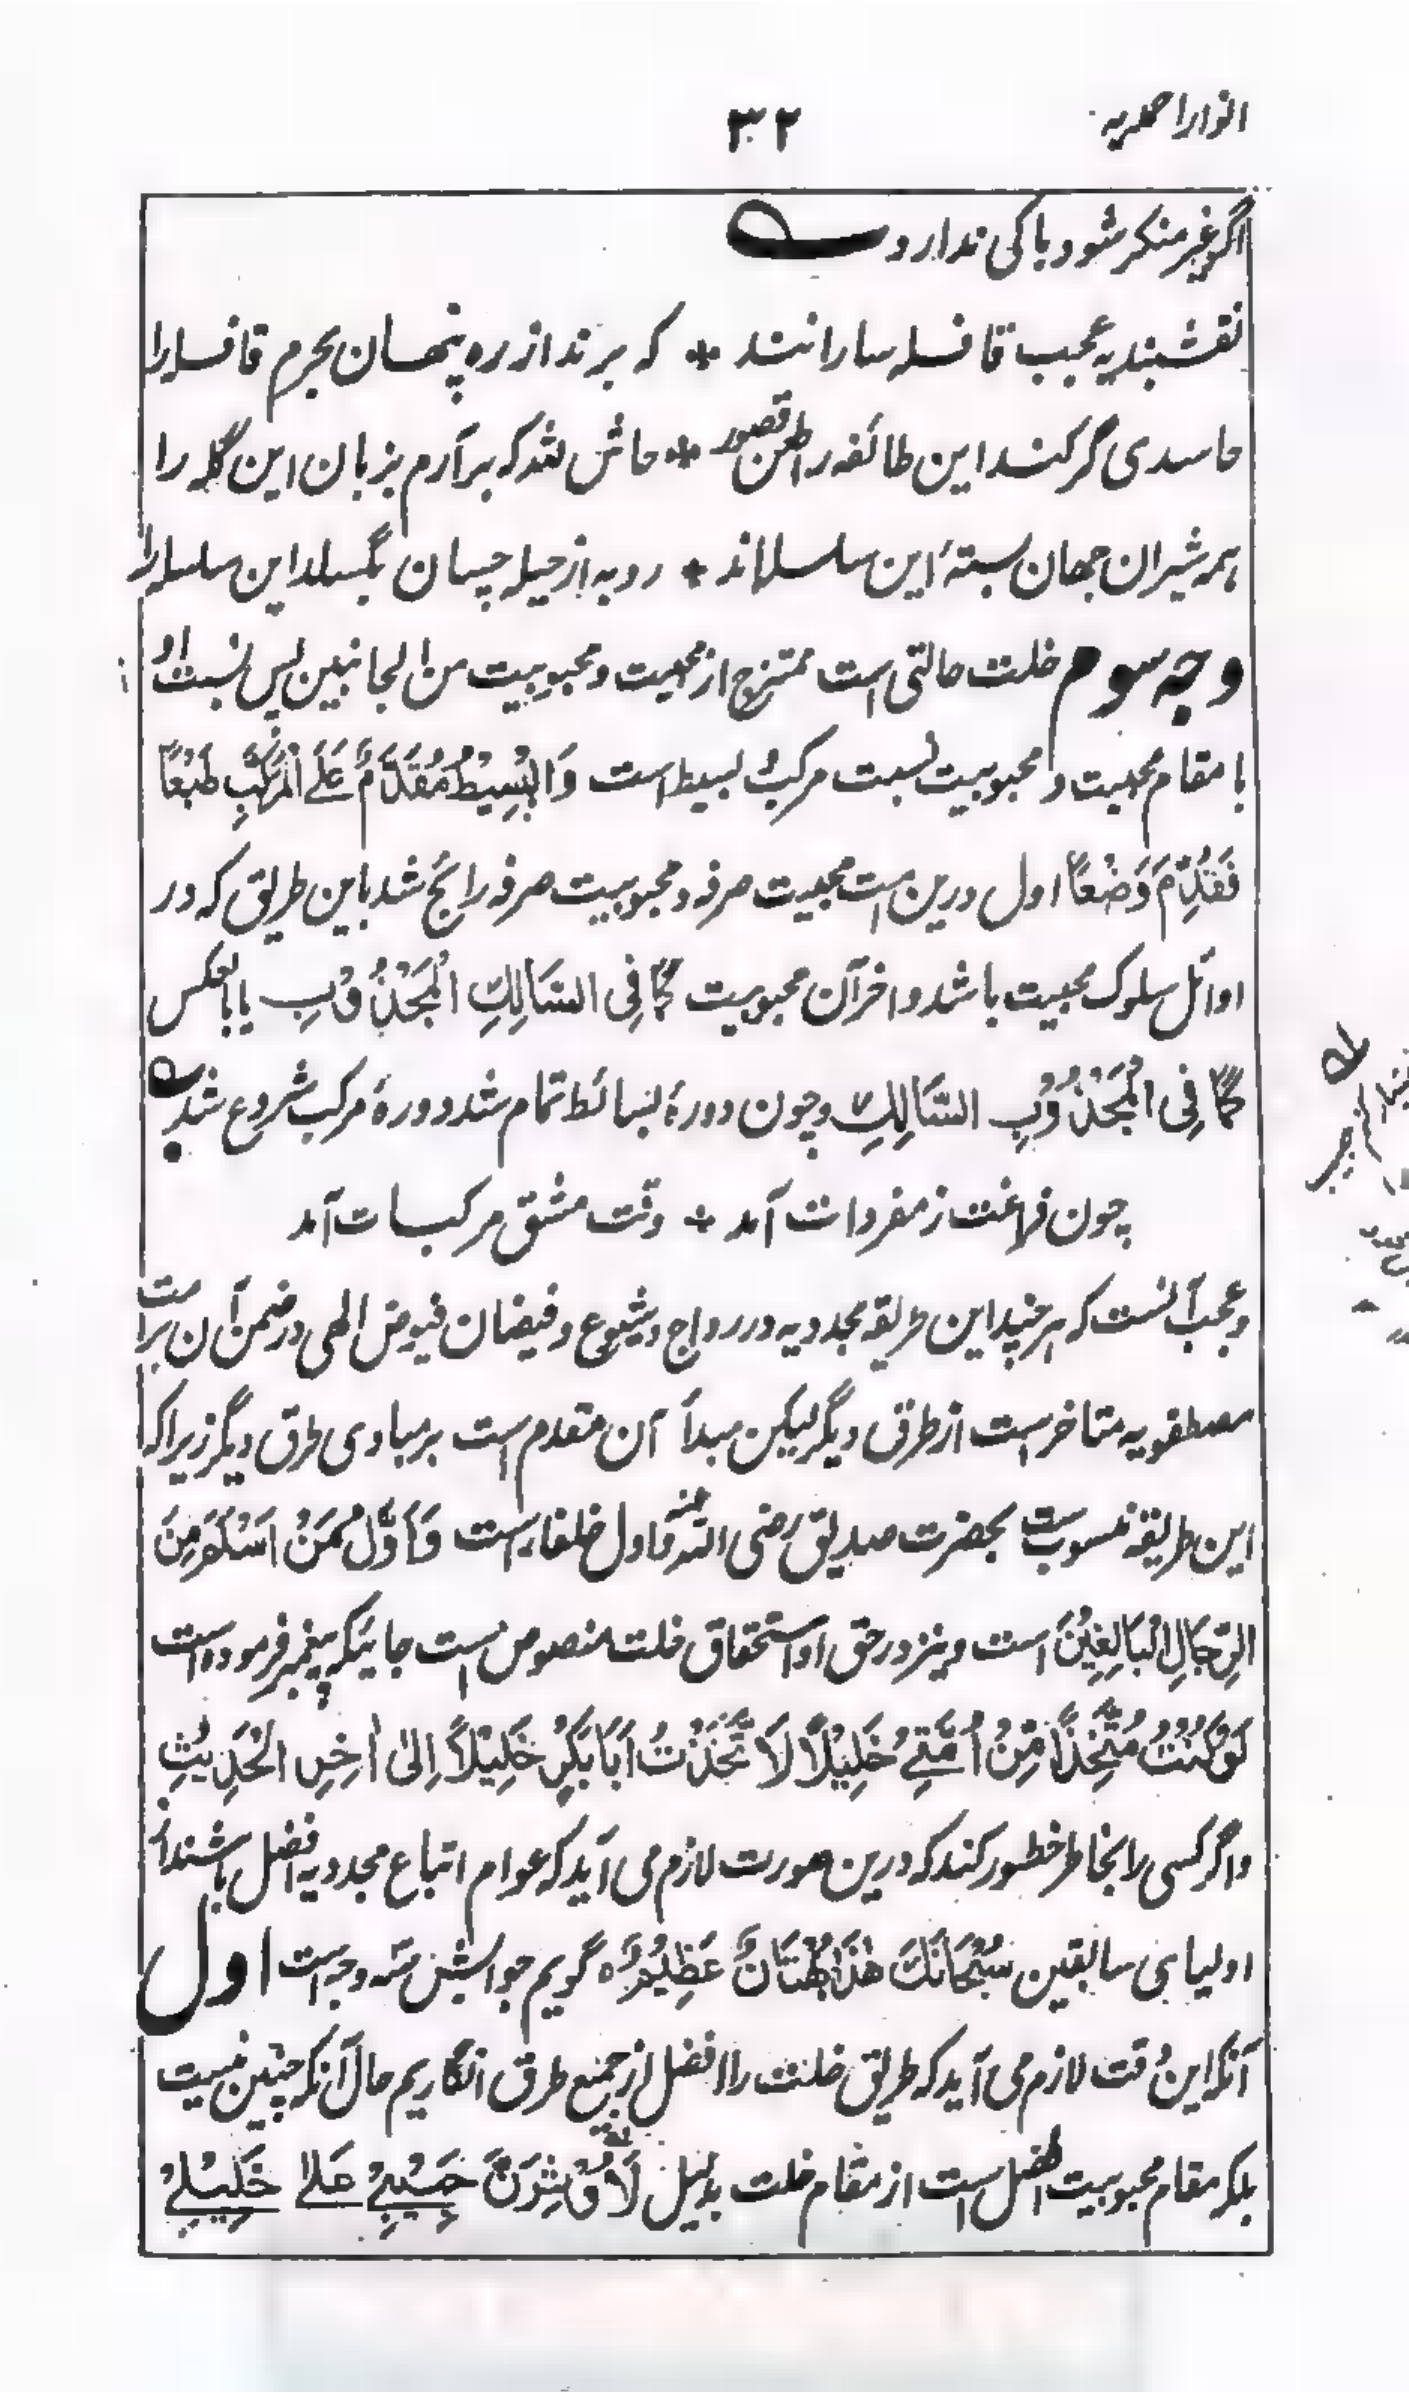 انوار احمدیه
۳۲
اگر غیر منکر شود باکی ندارد
نقشبندیه عجب قافله سالارانند * که برند از ره پنهان بحرم قافله را
حاسدی گر کند این طائفه را طعن قصور * حاش لله که برآرم بزبان این گله را
همه شیران جهان بستهٔ این سلسله اند * روبه از حیله چسان بگسلد این سلسله را
وجه سوم خلت حالتی است ممتزج از محبیت و محبوبیت من الجانبین پس نسبت او
با مقام محبیت و محبوبیت نسبت مرکب و بسیط است وَالْبَسِيْطُ مُقَدَّمٌ عَلَى الْمُرَكَّبِ طَبْعًا
فَقُدِّمَ وَضْعًا اول درین امت محبیت صرفه و محبوبیت صرفه رائج شد باین طریق که در
اوائل سلوک محبیت باشد و اخر آن محبوبیت كَمَا فِي السَّالِكِ الْمَجْذُوْبِ یا بالعکس
كَمَا فِي الْمَجْذُوْبِ السَّالِكِ و چون دورهٔ بسائط تمام شد دورهٔ مرکب شروع شد
چون فراغت ز مفردات آمد * وقت مشق مرکبات آمد
و عجب آنست که هر چند این طریقه مجددیه در رواج و شیوع و فیضان فیوض الهی در ضمن آن بر امت
مصطفویه متاخر است از طرق دیگر لیکن مبدأ آن متقدم است بر مبادی طرق دیگر زیرا که
این طریقه منسوب ست بحضرت صدیق رضی الله عنه و اول خلفا است وَاَوَّلُ مَنْ اَسْلَمَ مِنَ
الرِّجَالِ الْبَالِغِيْنَ است و نیز در حق او استحقاق خلت منصوص است جائیکه پیغمبر فرموده است
لَوْ كُنْتُ مُتَّخِذًا مِّنْ اُمَّتِيْ خَلِيْلًا لَاتَّخَذْتُ اَبَا بَكْرٍ خَلِيْلًا اِلىٰ اٰخِرِ الْحَدِيْثِ
و اگر کسی را بخاطر خطور کند که درین صورت لازم می آید که عوام اتباع مجددیه افضل باشند از
اولیای سابقین سُبْحَانَكَ هٰذَا بُهْتَانٌ عَظِيْمٌ ه گویم جوابش سه وجه است اول
آنکه این وقت لازم می آید که طریق خلت را افضل از جمیع طرق انگاریم حال آنکه چنین نیست
بلکه مقام محبوبیت افضل است از مقام خلت بدلیل لَاُوْثِرَنَّ حَبِيْبِيْ عَلىٰ خَلِيْلِيْ